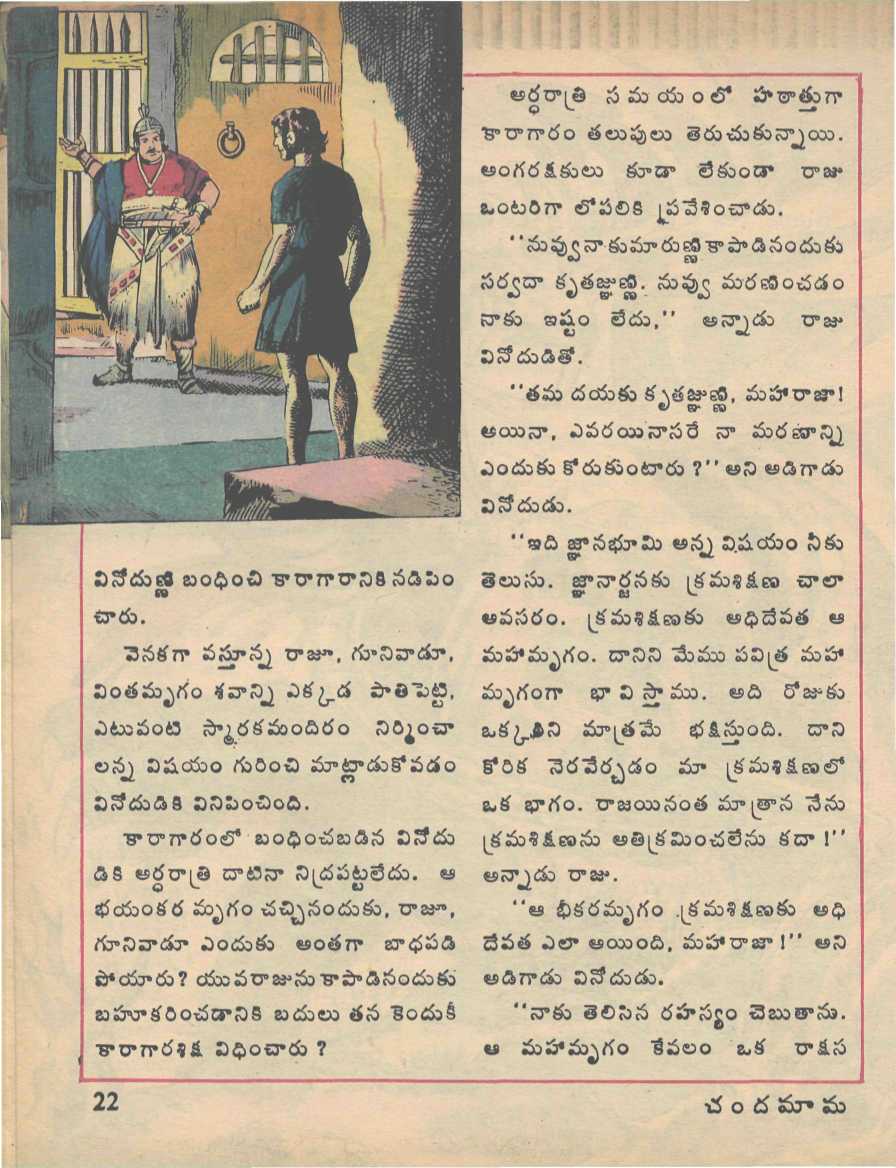 వినోదుణ్ణి బంధించి కారాగారానికి నడిపిం
చారు.
వెనకగా వస్తూన్న రాజూ, గూనివాడూ,
వింతమృగం శవాన్ని ఎక్కడ పాతిపెట్టి,
ఎటువంటి స్మారకమందిరం నిర్మించా
లన్న విషయం గురించి మాట్లాడుకోవడం
వినోదుడికి వినిపించింది.
కారాగారంలో బంధించబడిన వినోదు
డికి అర్ధరాత్రి దాటినా నిద్రపట్టలేదు. ఆ
భయంకర మృగం చచ్చినందుకు, రాజూ,
గూనివాడూ ఎందుకు అంతగా బాధపడి
పోయారు? యువరాజును కాపాడినందుకు
బహూకరించడానికి బదులు తన కెందుకీ
కారాగారశిక్ష విధించారు ?
అర్ధరాత్రి సమయంలో హఠాత్తుగా
కారాగారం తలుపులు తెరుచుకున్నాయి.
అంగరక్షకులు కూడా లేకుండా రాజు
ఒంటరిగా లోపలికి ప్రవేశించాడు.
"నువ్వు నా కుమారుణ్ణి కాపాడినందుకు
సర్వదా కృతజ్ఞుణ్ణి. నువ్వు మరణించడం
నాకు ఇష్టం లేదు," అన్నాడు రాజు
వినోదుడితో.
"తమ దయకు కృతజ్ఞుణ్ణి, మహారాజా!
అయినా, ఎవరయినాసరే నా మరణాన్ని
ఎందుకు కోరుకుంటారు ?" అని అడిగాడు
వినోదుడు.
"ఇది జ్ఞానభూమి అన్న విషయం నీకు
తెలుసు. జ్ఞానార్జనకు క్రమశిక్షణ చాలా
అవసరం. క్రమశిక్షణకు అధిదేవత ఆ
మహామృగం. దానిని మేము పవిత్ర మహా
మృగంగా భావిస్తాము. అది రోజుకు
ఒక్కడిని మాత్రమే భక్షిస్తుంది. దాని
కోరిక నెరవేర్చడం మా క్రమశిక్షణలో
ఒక భాగం. రాజయినంత మాత్రాన నేను
క్రమశిక్షణను అతిక్రమించలేను కదా !"
అన్నాడు రాజు.
"ఆ భీకరమృగం క్రమశిక్షణకు అధి
దేవత ఎలా అయింది, మహారాజా !" అని
అడిగాడు వినోదుడు.
"నాకు తెలిసిన రహస్యం చెబుతాను.
ఆ మహామృగం కేవలం ఒక రాక్షస
22
చందమామ